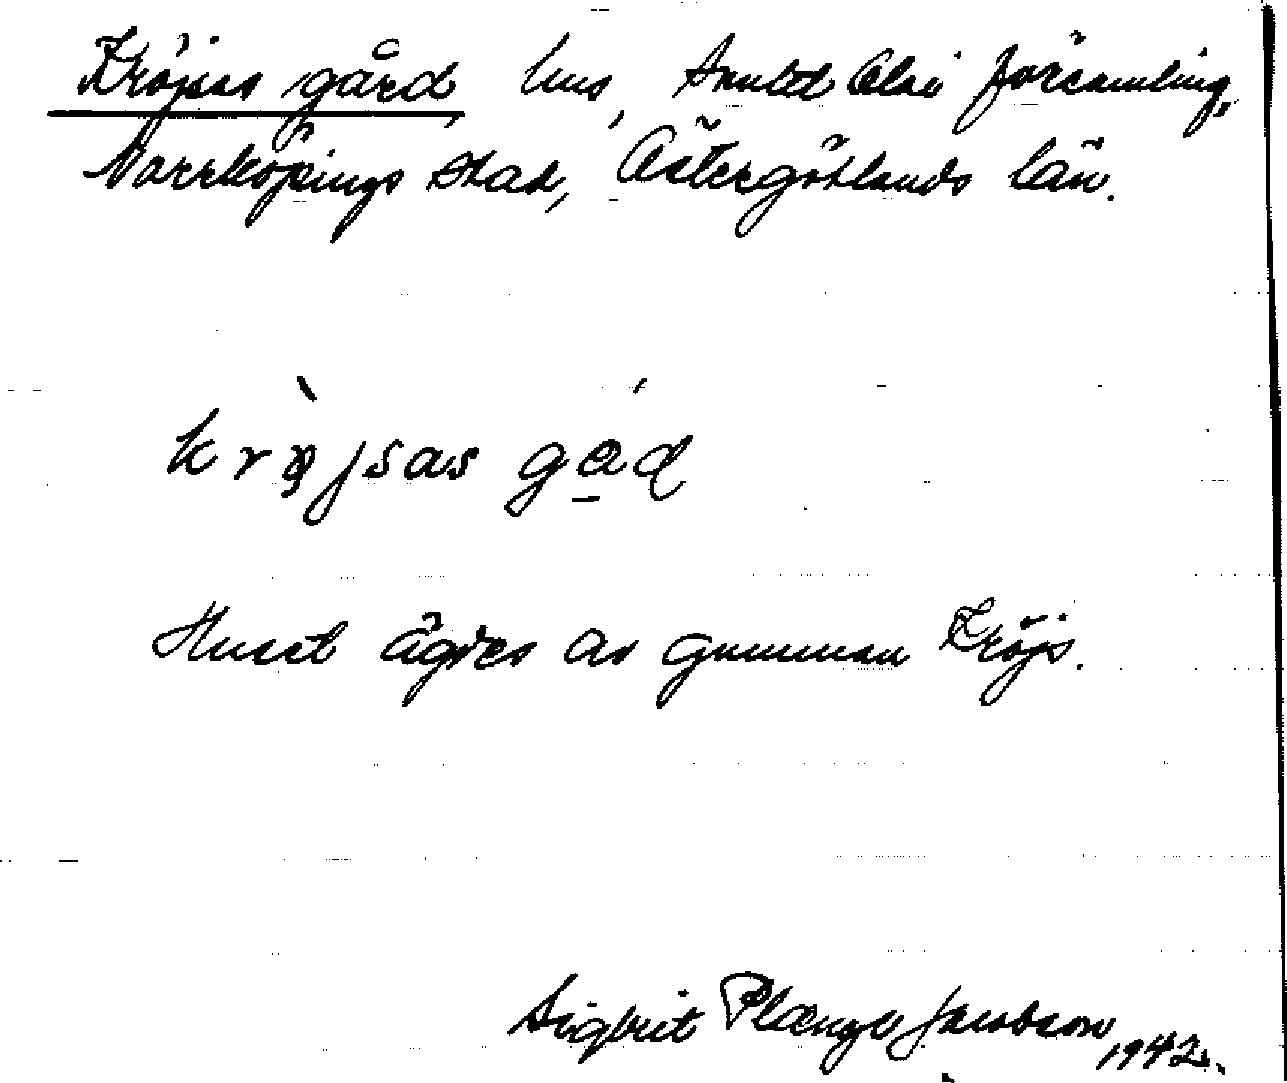 Kröjsas gård, hus, Sankt Olai församling,
Norrköpings stad, Östergötlands län.
krøjsas gad
Huset ägdes av gumman Kröjs.
Sigbrit Plænge Jacobson, 1942.